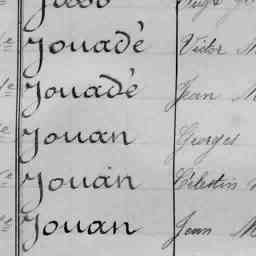 Jouadè Victor M
Jouadè Jean M
Jouan Georges
Jouan Célestin
Jouan Jean M